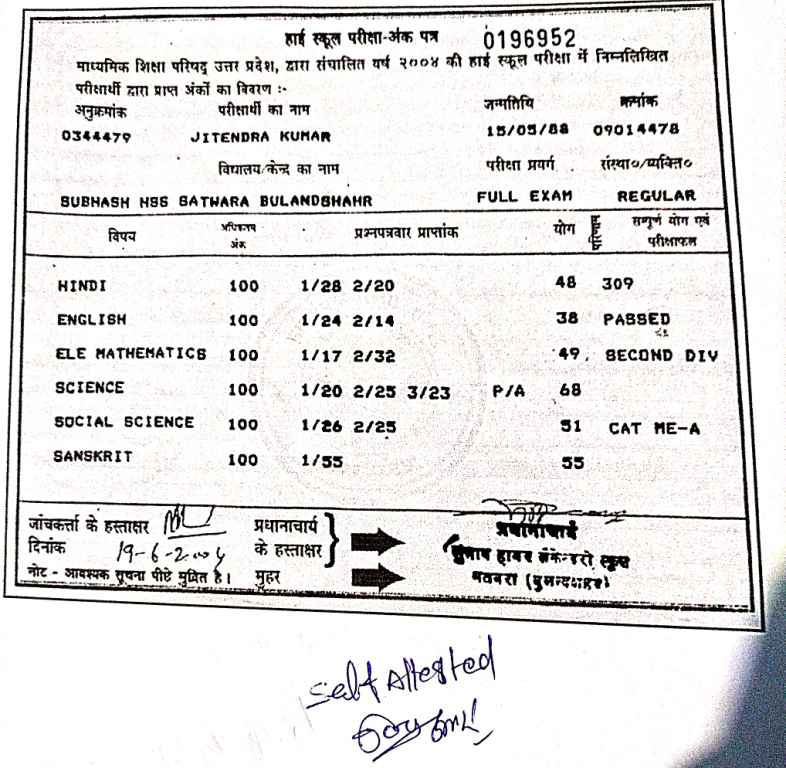 हाई स्कूल परीक्षा-अंक पत्र 0196952
माध्यमिक शिक्षा परिषद् उत्तर प्रदेश, द्वारा संचालित वर्ष २००४ की हाई स्कूल परीक्षा में निम्नलिखित
परीक्षार्थी द्वारा प्राप्त अंकों का विवरण :-
अनुक्रमांक परीक्षार्थी का नाम जन्मतिथि क्रमांक
0344479 JITENDRA KUMAR 15/05/88 09014478
विद्यालय/केन्द्र का नाम परीक्षा प्रवर्ग संस्था०/व्यक्ति०
SUBHASH HSS SATWARA BULANDSHAHR FULL EXAM REGULAR
विषय अधिकतम अंक प्रश्नपत्रवार प्राप्तांक योग परिणाम सम्पूर्ण योग एवं परीक्षाफल
HINDI 100 1/28 2/20 48 309
ENGLISH 100 1/24 2/14 38 PASSED
ELE MATHEMATICS 100 1/17 2/32 49, SECOND DIV
SCIENCE 100 1/20 2/25 3/23 P/A 68
SOCIAL SCIENCE 100 1/26 2/25 51 CAT ME-A
SANSKRIT 100 1/55 55
जांचकर्त्ता के हस्ताक्षर प्रधानाचार्य प्रधानाचार्य
दिनांक 19-6-2004 के हस्ताक्षर
नोट - आवश्यक सूचना पीछे मुद्रित है। मुहर
Self Attested